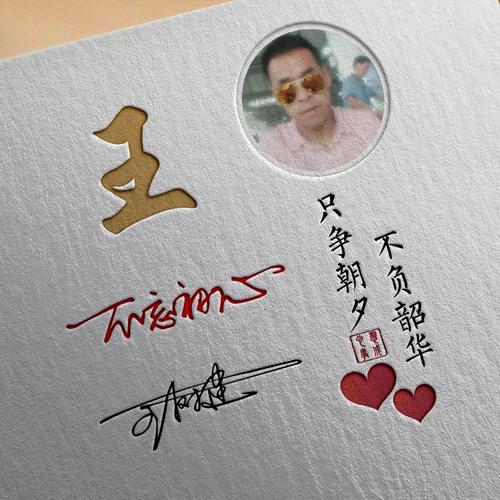 王
只争朝夕
不负韶华
不忘初心